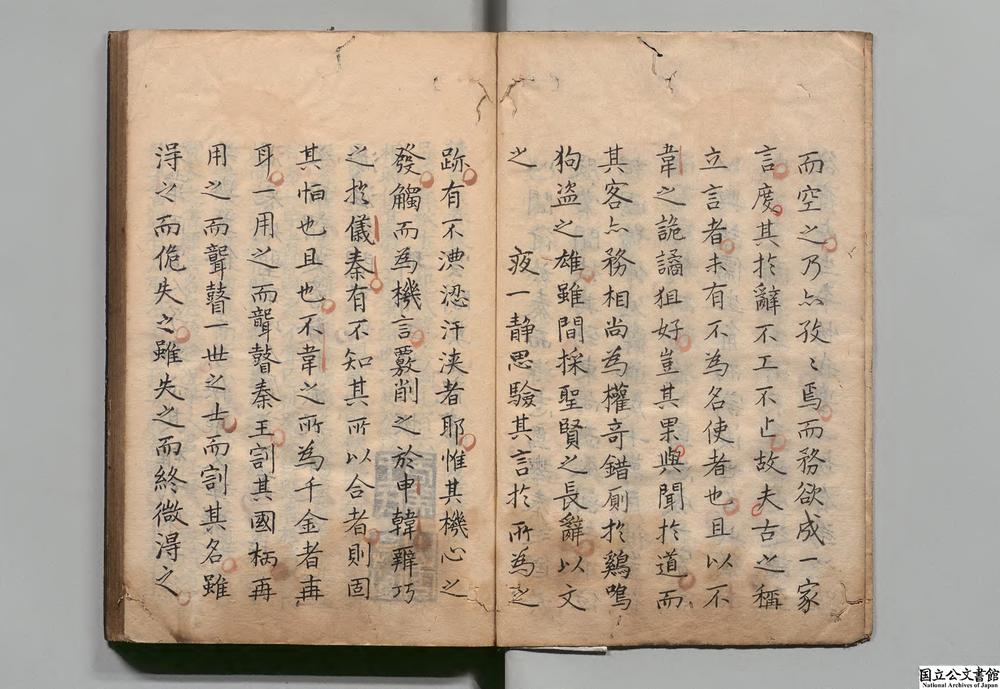 而空之乃亦孜〻焉而務欲成一家
言度其於辭不工不止故夫古之稱
立言者未有不為名使者也且以不
韋之詭譎狙好豈其果與聞於道而
其客亦務相尚為權奇錯廁於鷄鳴
狗盗之雄雖間採聖賢之長辭以文
之 夜一静思驗其言於所為之
跡有不凓㳷汗浹者耶惟其機心之
發觸而為機言覈削之於申韓辯巧
之於儀秦有不知其所以合者則固
其怕也且也不韋之所為千金者再
耳一用之而聾瞽秦王割其國柄再
用之而聾瞽一世之士而割其名雖
淂之而佹失之雖失之而終微淂之
国立公文書館
National Archives of Japan